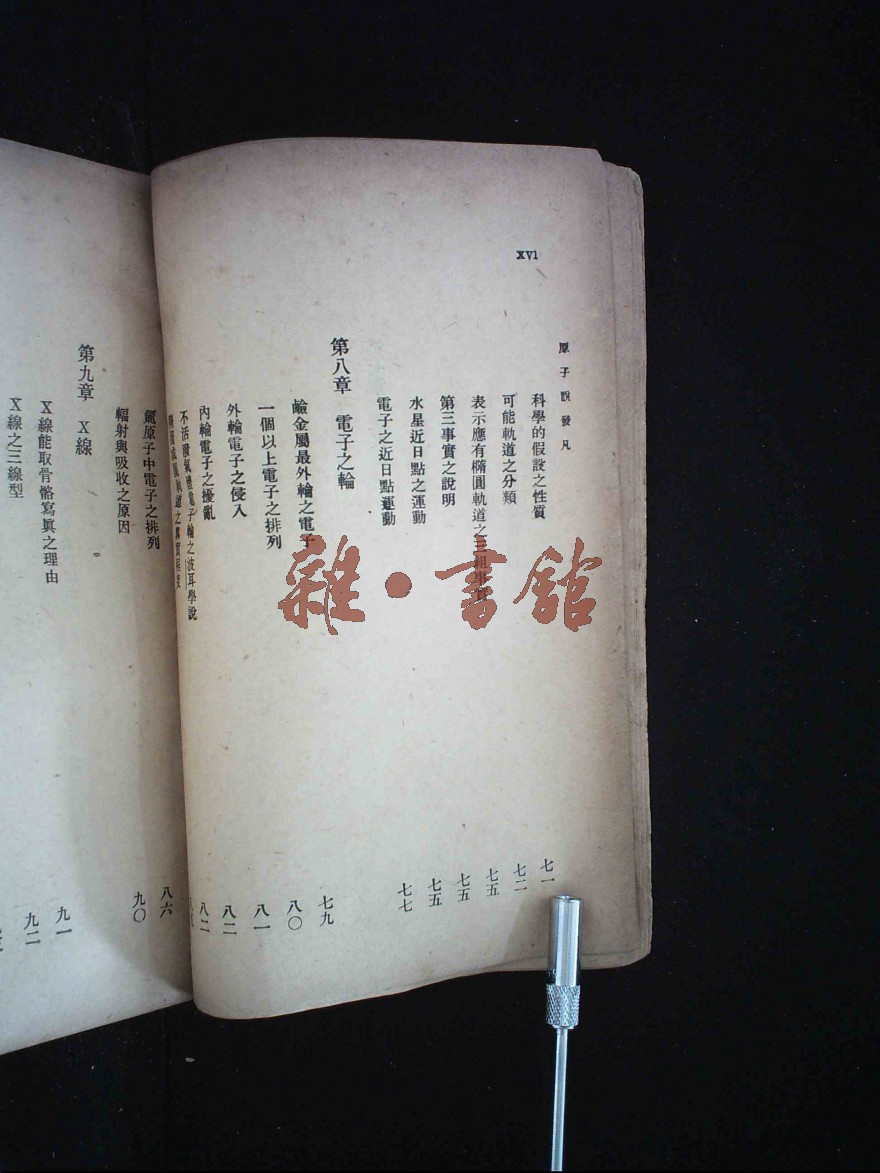 xvi
原子說發凡
科學的假設之性質 七一
可能軌道之分類 七二
表示應有橢圓軌道之三組事實 七五
第三事實之說明 七五
水星近日點之運動 七五
電子之近日點運動 七七
第八章 電子之輪 七九
鹼金屬最外輪之電子 八〇
一個以上電子之排列 八一
外輪電子之侵入 八二
內輪電子之擾亂 八二
不活潑氣體電子輪之波耳學說
氮原子中電子之排列 八六
輻射與吸收之原因 九〇
第九章 X線 九一
X線能取骨骼寫眞之理由 九二
X線之三線型
雜·書館